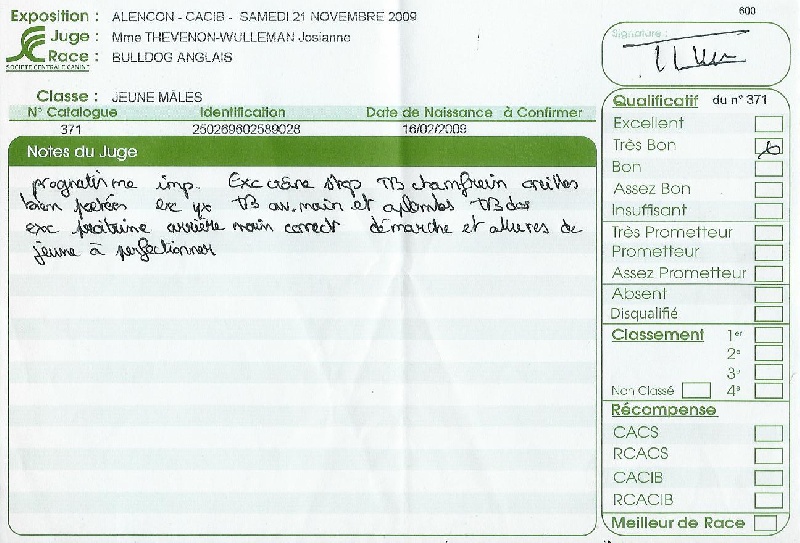 600
Exposition : ALENCON - CACIB - SAMEDI 21 NOVEMBRE 2009
Juge : Mme THEVENON-WULLEMAN Josianne
Race : BULLDOG ANGLAIS
SOCIETE CENTRALE CANINE
Signature :
Classe : JEUNE MÂLES
N° Catalogue Identification Date de Naissance à Confirmer
371 250269602589028 16/02/2009
Notes du Juge
prognatisme imp. Exc crâne stop TB chanfrein oreilles
bien portées exc yx TB av. main et aplombs TB dos
exc poitrine arrière main correct démarche et allures de
jeune à perfectionner
Qualificatif du n° 371
Excellent
Très Bon
Bon
Assez Bon
Insuffisant
Très Prometteur
Prometteur
Assez Prometteur
Absent
Disqualifié
Classement 1er
2e
3e
Non Classé 4e
Récompense
CACS
RCACS
CACIB
RCACIB
Meilleur de Race